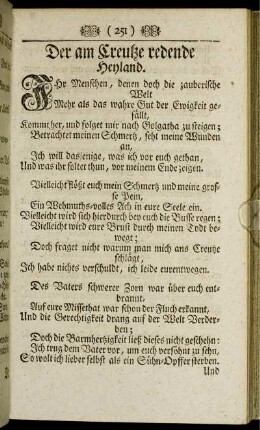 ( 251 )
Der am Creutze redende
Heyland.
Ihr Menschen, denen doch die zauberische
Welt
Mehr als das wahre Gut der Ewigkeit ge-
fällt,
Kommt her, und folget mir nach Golgatha zu steigen;
Betrachtet meinen Schmertz, seht meine Wunden
an,
Ich will dasjenige, was ich vor euch gethan,
Und was ihr soltet thun, vor meinem Ende zeigen.
Vielleicht flößt euch mein Schmertz und meine gros-
se Pein,
Ein Wehmuths-volles Ach in eure Seele ein.
Vielleicht wird sich hierdurch bey euch die Busse regen;
Vielleicht wird eure Brust durch meinen Todt be-
wegt;
Doch fraget nicht warum man mich ans Creutze
schlägt,
Ich habe nichts verschuldt, ich leide eurentwegen.
Des Vaters schwerer Zorn war über euch ent-
brannt,
Auf eure Missethat war schon der Fluch erkannt,
Und die Gerechtigkeit drang auf der Welt Verder-
ben;
Doch die Barmhertzigkeit ließ dieses nicht geschehn:
Ich trug dem Vater vor, um euch versöhnt zu sehn,
So wolt ich lieber selbst als ein Sühn-Opffer sterben.
Und